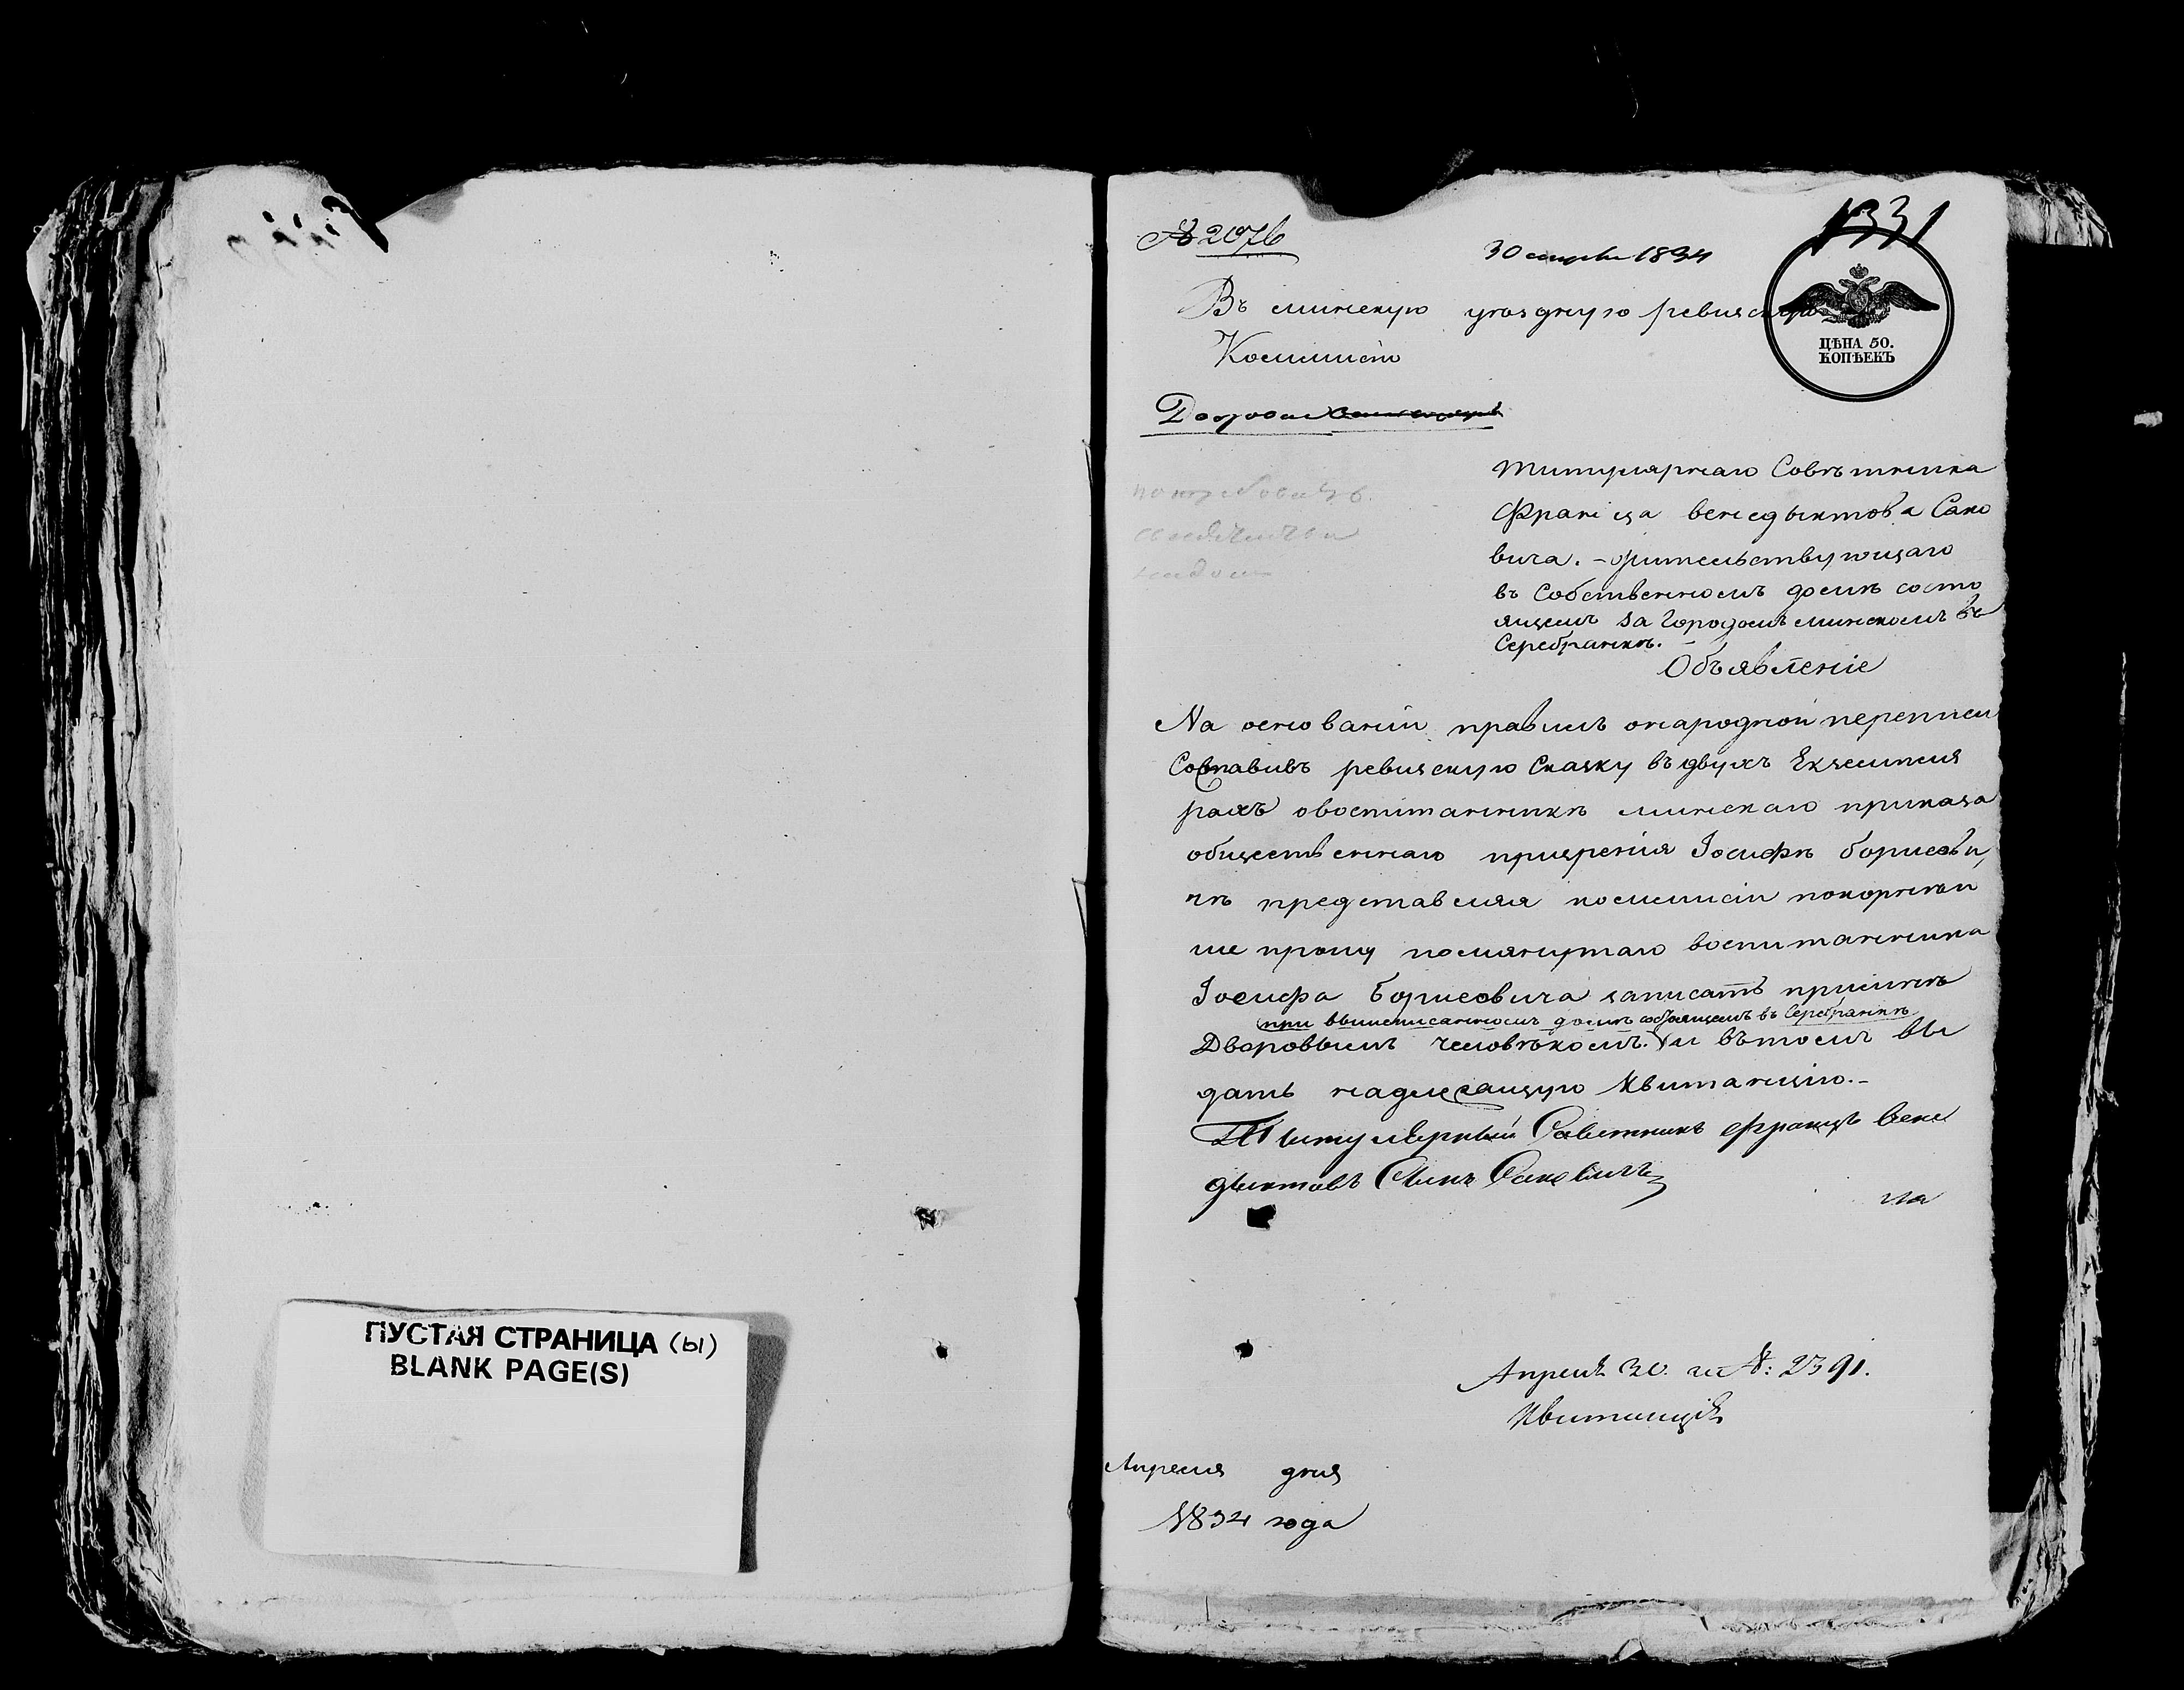 ПУСТАЯ СТРАНИЦА (ы)
BLANK PAGE(S)
№ 2076
1331
30 апреля 1834
ЦѢНА 50.
КОПѢЕКЪ
Въ минскую уѣздную ревизскую
Коммисію
Дворовые
потребовать
Титулярнаго Совѣтника
Франца венедыктова Сако
вича. - жительствующаго
въ Собственномъ домѣ состо
ящемъ за Городомъ минскомъ въ
Серебранкѣ.
Объявленіе
На основаніи правилъ онародной переписи
Составивъ ревизскую Сказку въ двухъ Екземпля
рахъ овоспитанникѣ минскаго приказа
общественнаго призренія Іосифѣ борисови
чѣ представляя коммисіи покорнѣй
ше прошу помянутаго воспитанника
Іосифа борисовича записать примнѣ
при вышеписанномъ домѣ состоящемъ въ Серебранкѣ
Дворовымъ человѣкомъ. и вътомъ вы
дать надлежащую Квитанцію.-
Титулярный Саветникъ Францъ Вене
дыктовъ Сынъ Саковичъ
Апреля 30. за №: 2391.
Квитанція
Апреля дня
1834 года